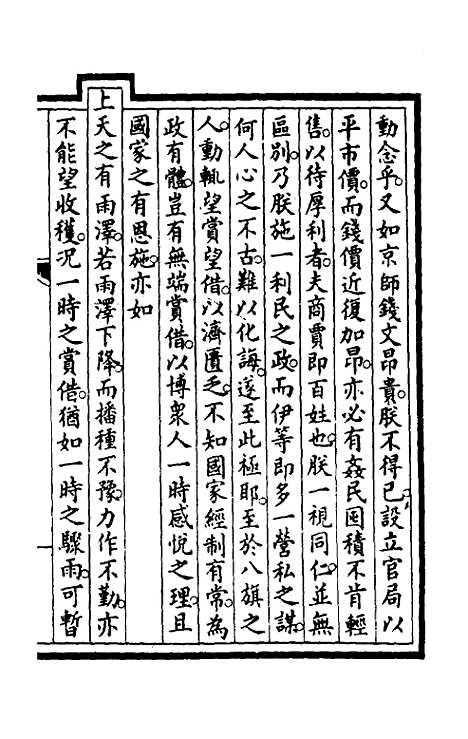 動念乎又如京師錢文昂貴朕不得已設立官局以
平市價而錢價近復加昂亦必有姦民囤積不肯輕
售以待厚利者夫商賈即百姓也朕一視同仁並無
區別乃朕施一利民之政而伊等即多一營私之謀
何人心之不古難以化誨遂至此極耶至於八旗之
人動輒望賞望借以濟匱乏不知國家經制有常為
政有體豈有無端賞借以博衆人一時感悅之理且
國家之有恩施亦如
上天之有雨澤若雨澤下降而播種不豫力作不勤亦
不能望收穫況一時之賞借猶如一時之驟雨可暫